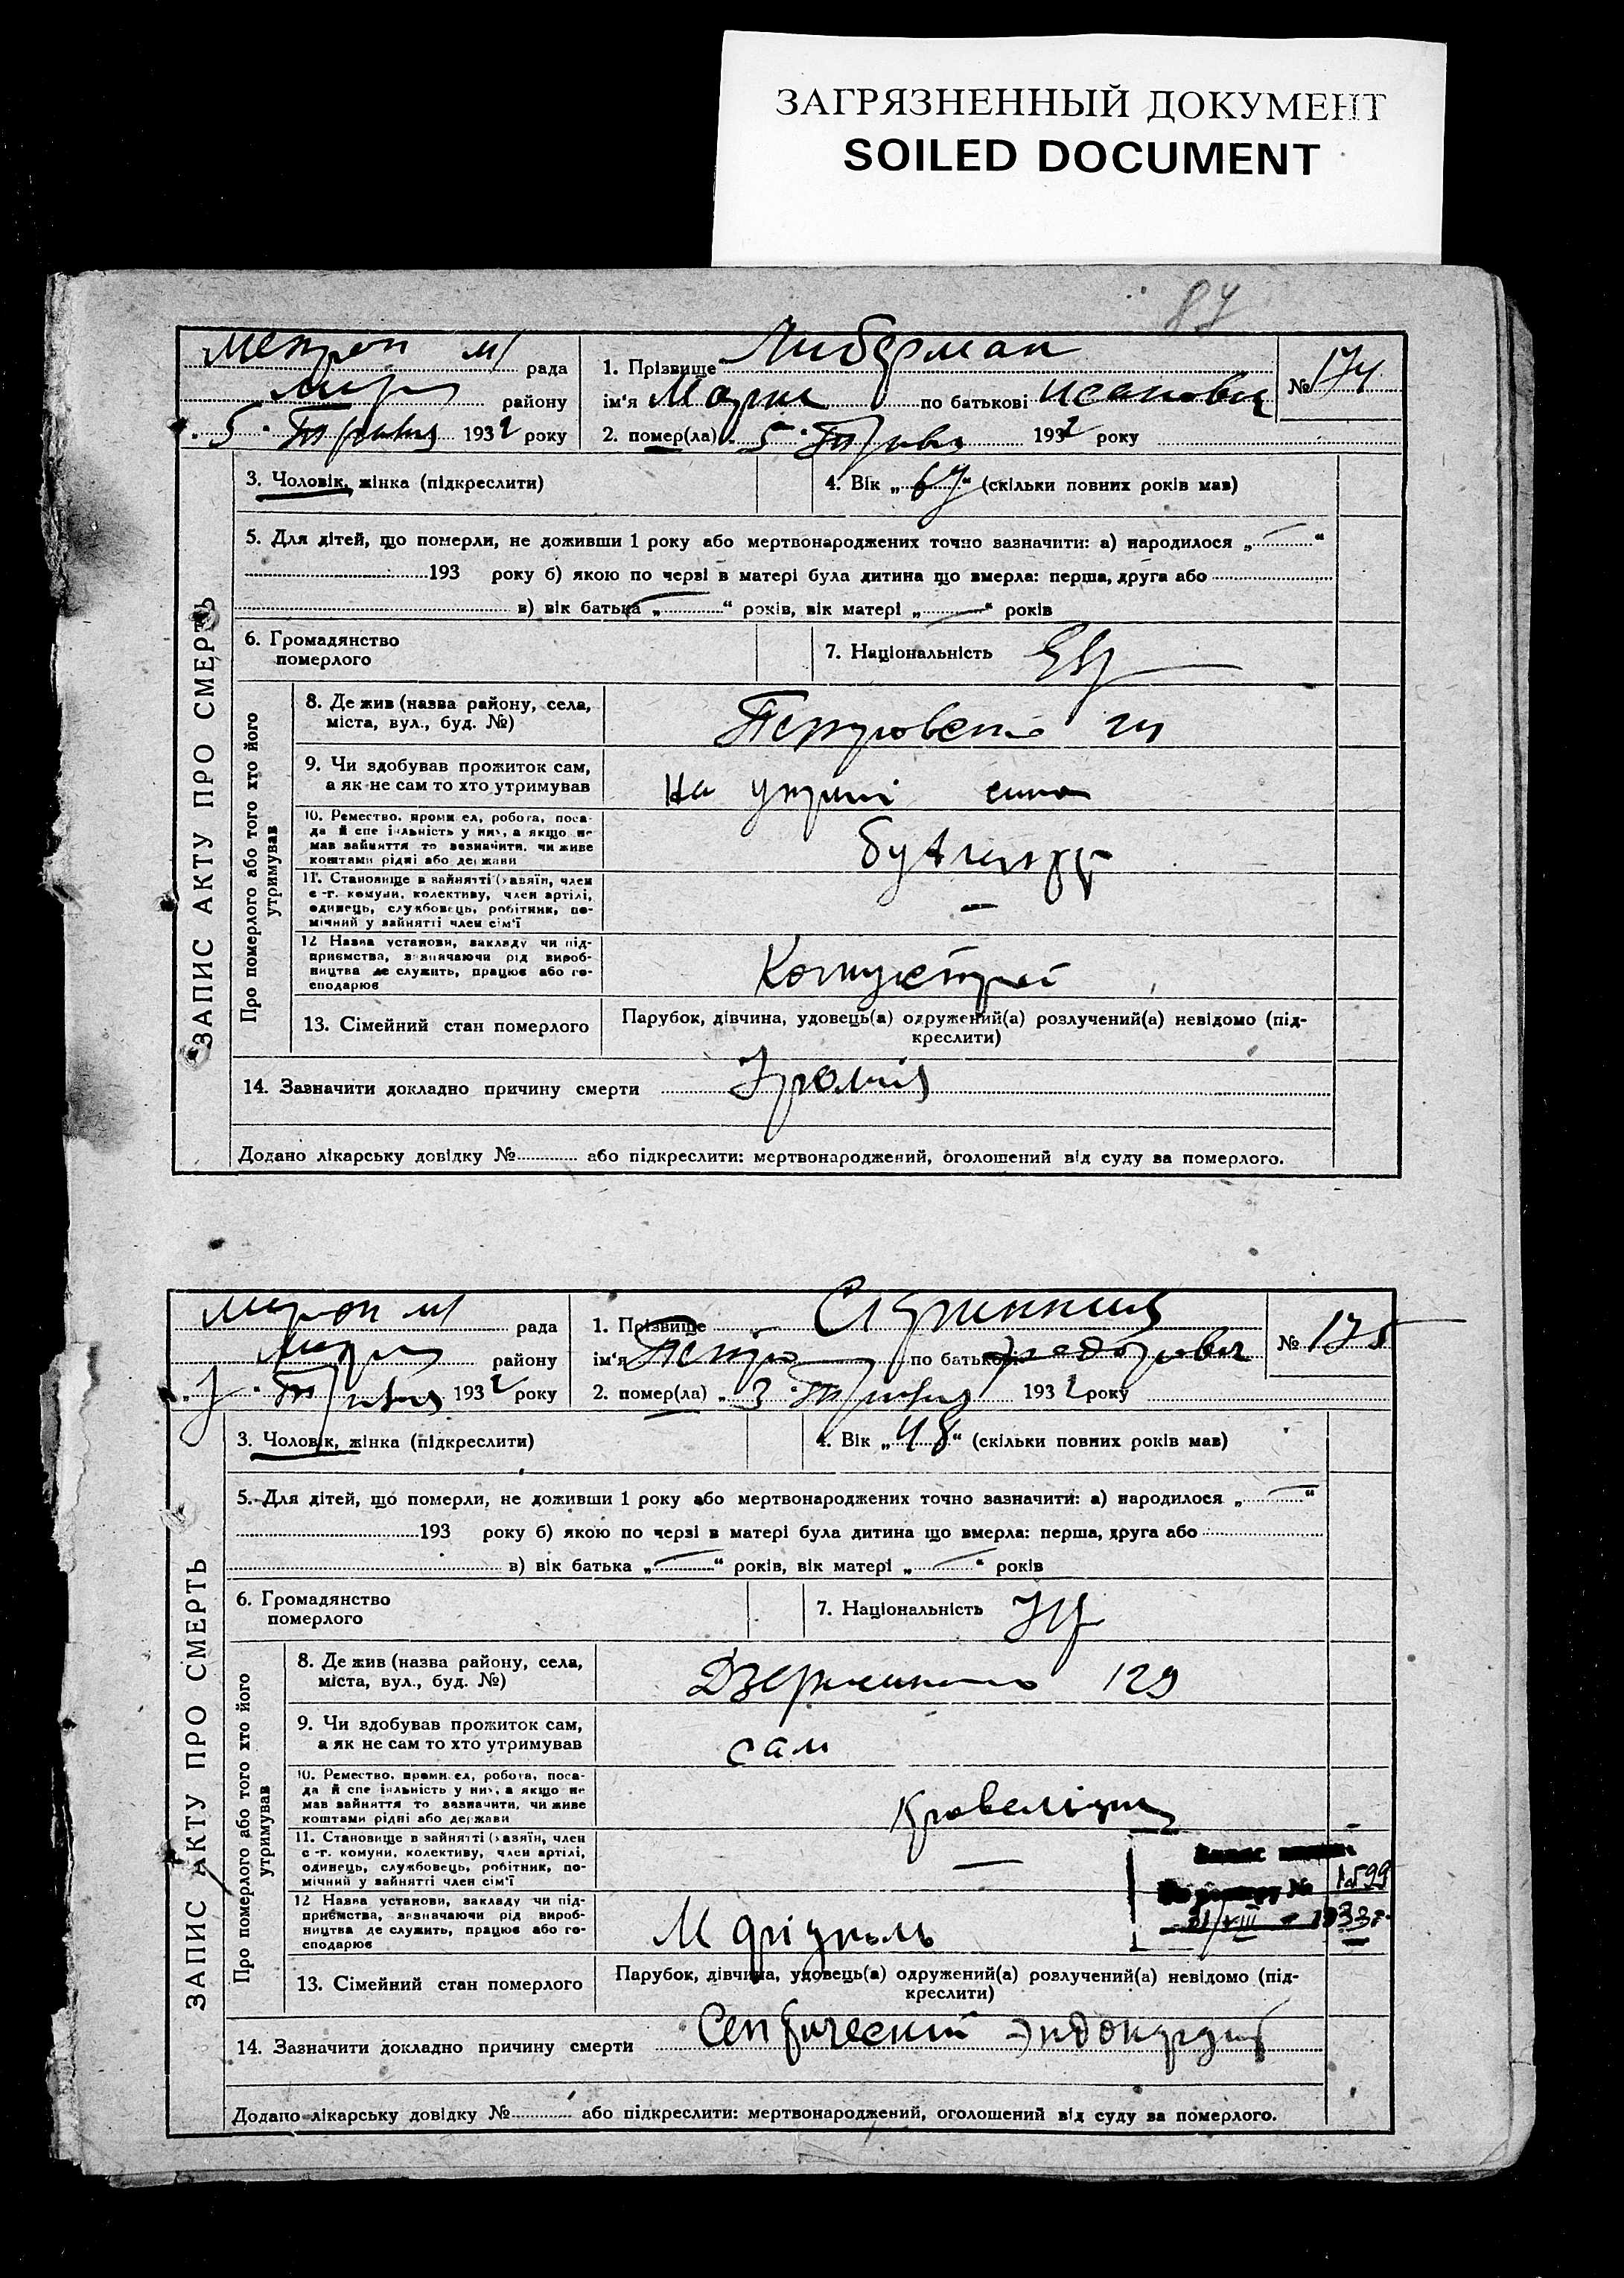 ЗАГРЯЗНЕННЫЙ ДОКУМЕНТ
SOILED DOCUMENT
87
рада
району
5 Травня 1932 року
1. Прізвище Либерман
ім'я по батькові
2. помер(ла) „ 5 " Травня 1932 року
№ 174
ЗАПИС АКТУ ПРО СМЕРТЬ
3. Чоловік, жінка (підкреслити)
4. Вік „67" (скільки повних років мав)
5. Для дітей, що померли, не доживши 1 року або мертвонароджених точно зазначити: а) народилося „ — "
193 року б) якою по черзі в матері була дитина що вмерла: перша, друга або
в) вік батька „ — " років, вік матері „ — " років
6. Громадянство
померлого
7. Національність Евр
Про померлого або того хто його
утримував
8. Де жив (назва району, села,
міста, вул., буд. №)
9. Чи здобував прожиток сам,
а як не сам то хто утримував
на утрині сина
10. Ремество, промисел, робота, поса-
да й спеціяльність у них, а якщо не
мав зайняття то зазначити, чи живе
коштами рідні або держави
11. Становище в зайнятті (хазяїн, член
с-г. комуни, колективу, член артілі,
одинець, службовець, робітник, по-
мічний у зайнятті член сім'ї
—
12 Назва установи, закладу чи під-
приємства, визначаючи рід вироб-
ництва де служить, працює або го-
сподарює
13. Сімейний стан померлого
Парубок, дівчина, удовець(а) одружений(а) розлучений(а) невідомо (під-
креслити)
14. Зазначити докладно причину смерти
Додано лікарську довідку № або підкреслити: мертвонароджений, оголошений від суду за померлого.
рада
району
3 Травня 1932 року
1. Прізвище
ім'я Петро по батькові Федорович
2. помер(ла) „ 3 " Травня 1932 року
№ 175
ЗАПИС АКТУ ПРО СМЕРТЬ
3. Чоловік, жінка (підкреслити)
4. Вік „48" (скільки повних років мав)
5. Для дітей, що померли, не доживши 1 року або мертвонароджених точно зазначити: а) народилося „ — "
193 року б) якою по черзі в матері була дитина що вмерла: перша, друга або
в) вік батька „ — " років, вік матері „ — " років
6. Громадянство
померлого
7. Національність Укр
Про померлого або того хто його
утримував
8. Де жив (назва району, села,
міста, вул., буд. №)
Дзержинского 129
9. Чи здобував прожиток сам,
а як не сам то хто утримував
сам
10. Ремество, промисел, робота, поса-
да й спеціяльність у них, а якщо не
мав зайняття то зазначити, чи живе
коштами рідні або держави
Кровельщик
11. Становище в зайнятті (хазяїн, член
с-г. комуни, колективу, член артілі,
одинець, службовець, робітник, по-
мічний у зайнятті член сім'ї
—
№ 1599
31/VIII 1933 г.
12 Назва установи, закладу чи під-
приємства, визначаючи рід вироб-
ництва де служить, працює або го-
сподарює
13. Сімейний стан померлого
Парубок, дівчина, удовець(а) одружений(а) розлучений(а) невідомо (під-
креслити)
14. Зазначити докладно причину смерти Септический эндокардит
Додано лікарську довідку № або підкреслити: мертвонароджений, оголошений від суду за померлого.